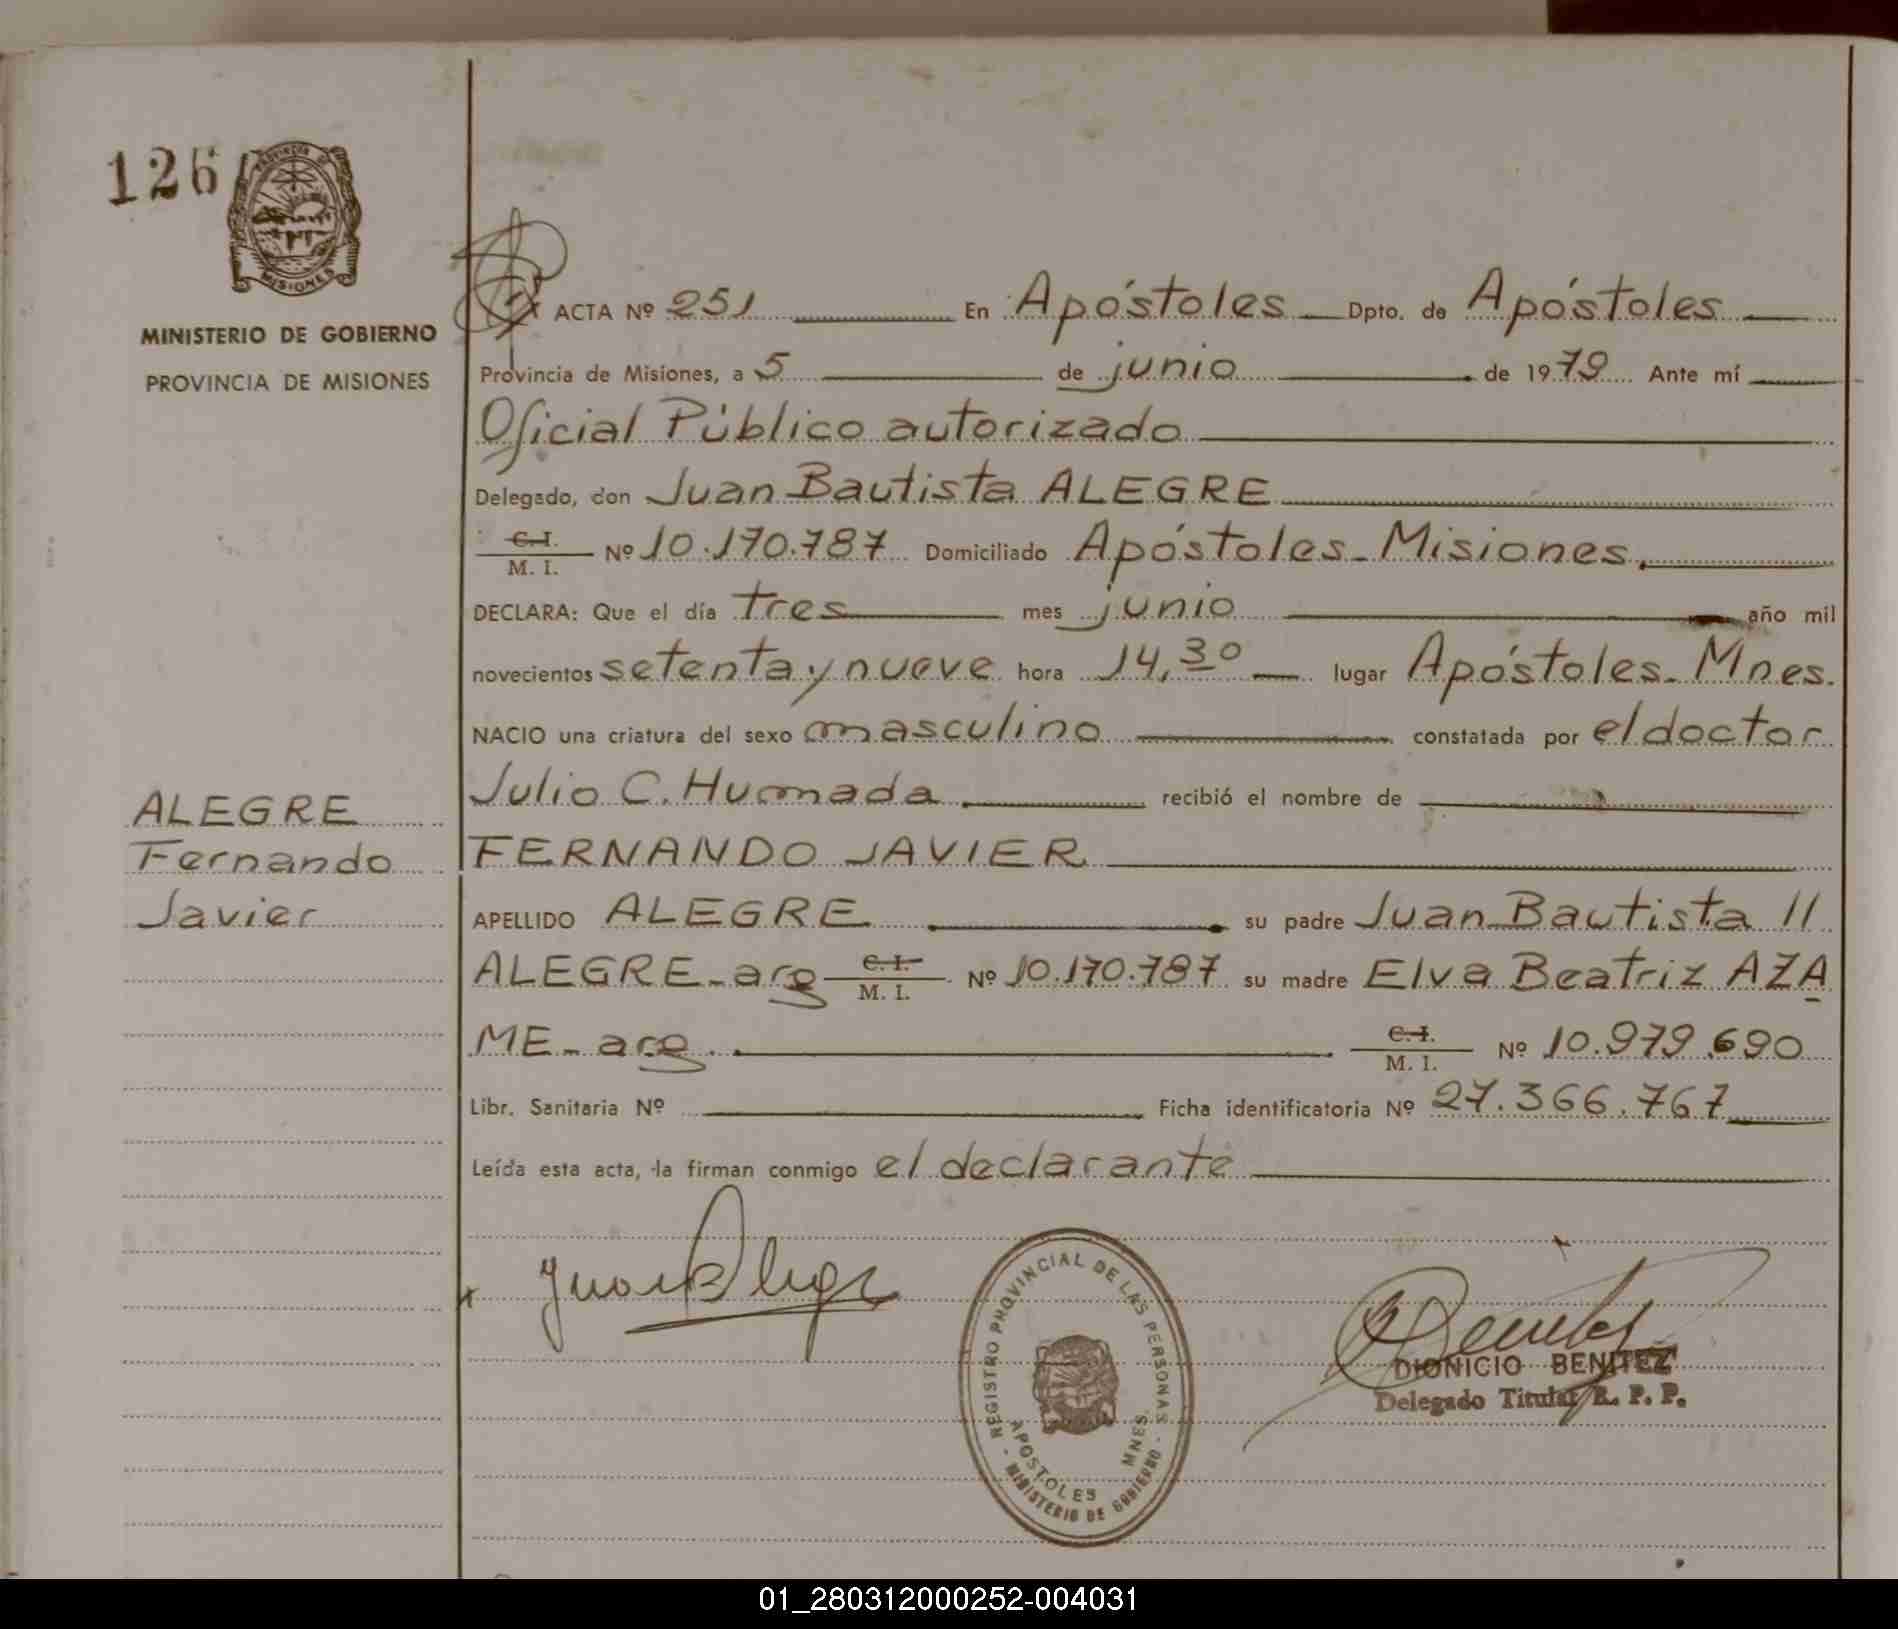 126
PROVINCIA DE
MISIONES
MINISTERIO DE GOBIERNO
PROVINCIA DE MISIONES
ALEGRE
Fernando
Javier
ACTA Nº 251 En Apóstoles Dpto. de Apóstoles
Provincia de Misiones, a 5 de junio de 1979 Ante mí
Oficial Público autorizado
Delegado, don Juan Bautista ALEGRE
C.I.
M. I. Nº 10.170.787 Domiciliado Apóstoles-Misiones.
DECLARA: Que el día tres mes junio año mil
novecientos setenta y nueve hora 14,30 lugar Apóstoles-Mnes.
NACIO una criatura del sexo masculino constatada por el doctor
Julio C. Humada recibió el nombre de
FERNANDO JAVIER
APELLIDO ALEGRE su padre Juan Bautista //
ALEGRE-arg C.I. M. I. Nº 10.170.787 su madre Elva Beatriz AZA
ME-arg. C.I. M. I. Nº 10.979.690
Libr. Sanitaria Nº Ficha identificatoria Nº 27.366.767
Leída esta acta, la firman conmigo el declarante
REGISTRO PROVINCIAL DE LAS PERSONAS
APOSTOLES MNES.
MINISTERIO DE GOBIERNO
DIONICIO BENITEZ
Delegado Titular R. P. P.
01_280312000252-004031